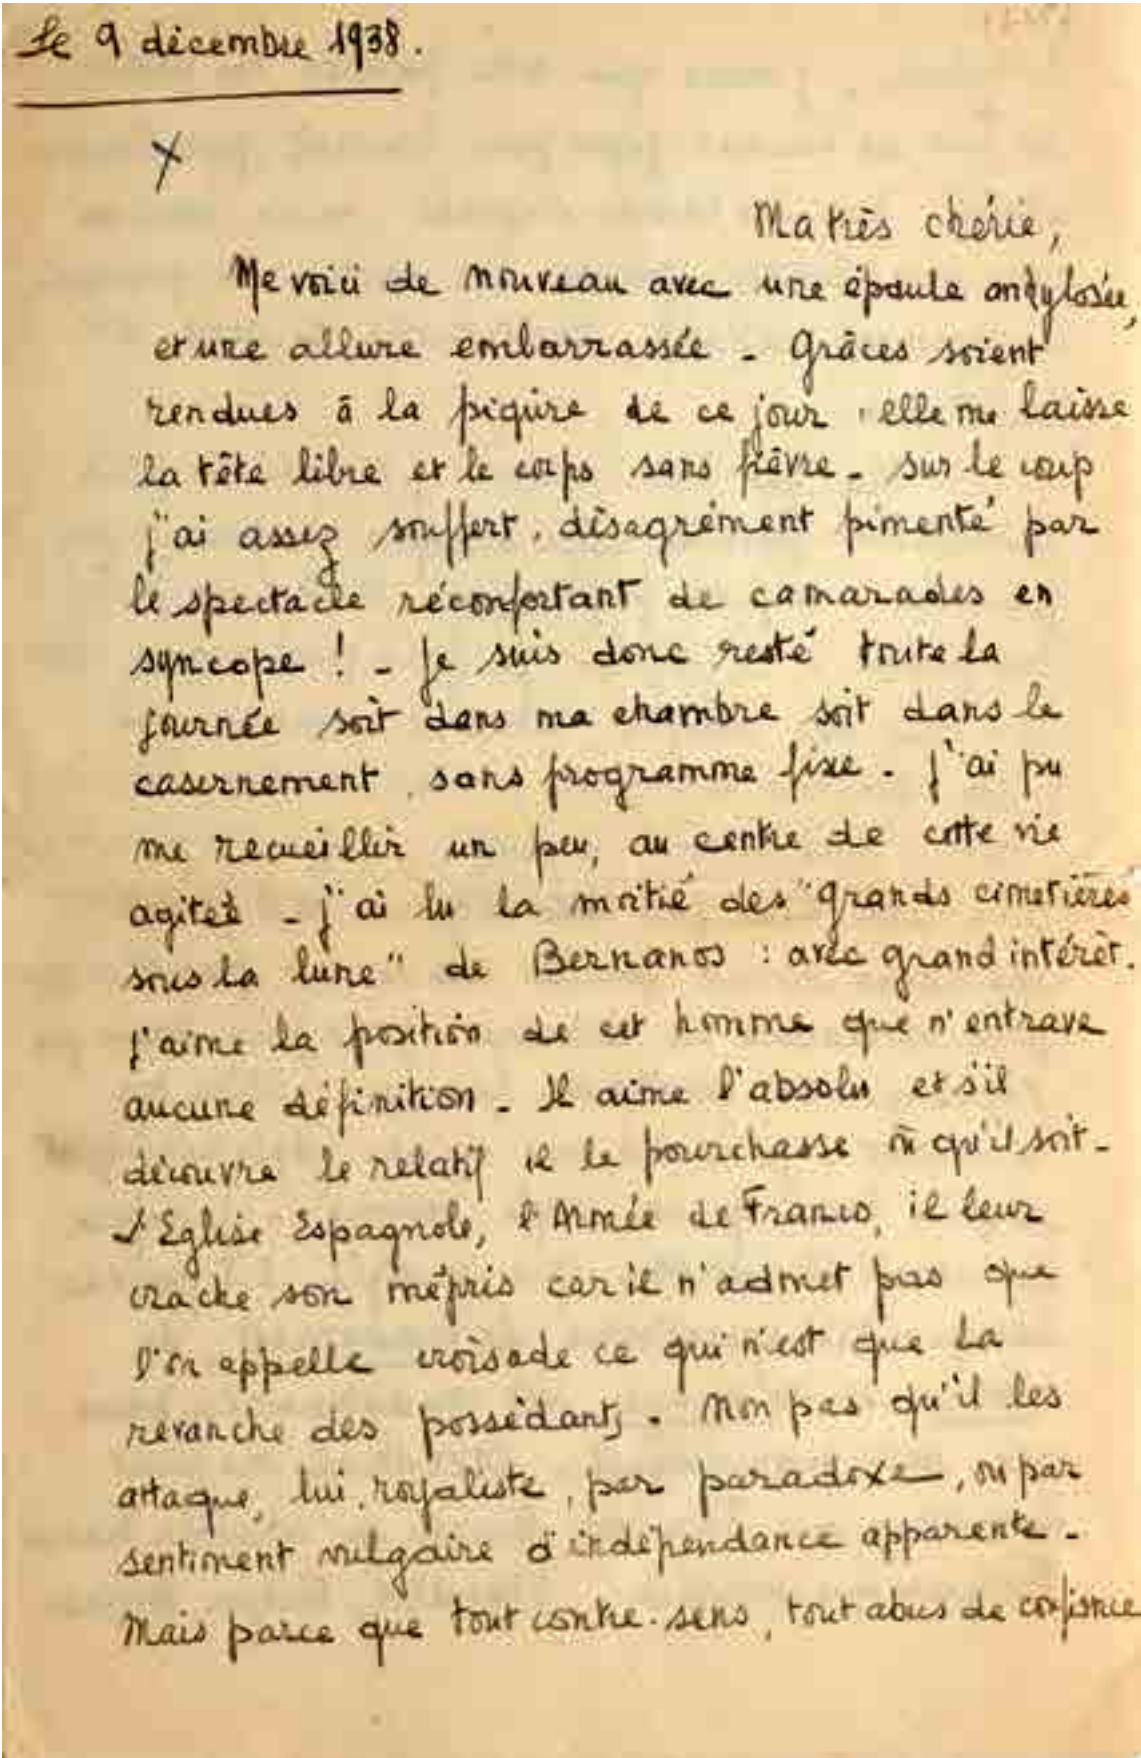 le 9 décembre 1938.
X
Ma très chérie,
Me voici de nouveau avec une épaule ankylosée,
et une allure embarrassée - Grâces soient
rendues à la piqûre de ce jour : elle me laisse
la tête libre et le corps sans fièvre - sur le coup
j'ai assez souffert, désagrément pimenté par
le spectacle réconfortant de camarades en
syncope ! - Je suis donc resté toute la
journée soit dans ma chambre soit dans le
casernement, sans programme fixe - J'ai pu
me recueillir un peu, au centre de cette vie
agitée - j'ai lu la moitié des "Grands cimetières
sous la lune" de Bernanos : avec grand intérêt.
J'aime la position de cet homme que n'entrave
aucune définition - Il aime l'absolu et s'il
découvre le relatif il le pourchasse où qu'il soit -
L'Eglise Espagnole, l'Armée de Franco, il leur
crache son mépris car il n'admet pas que
l'on appelle croisade ce qui n'est que la
revanche des possédants. Non pas qu'il les
attaque, lui, royaliste, par paradoxe, ou par
sentiment vulgaire d'indépendance apparente -
Mais parce que tout contre-sens, tout abus de confiance